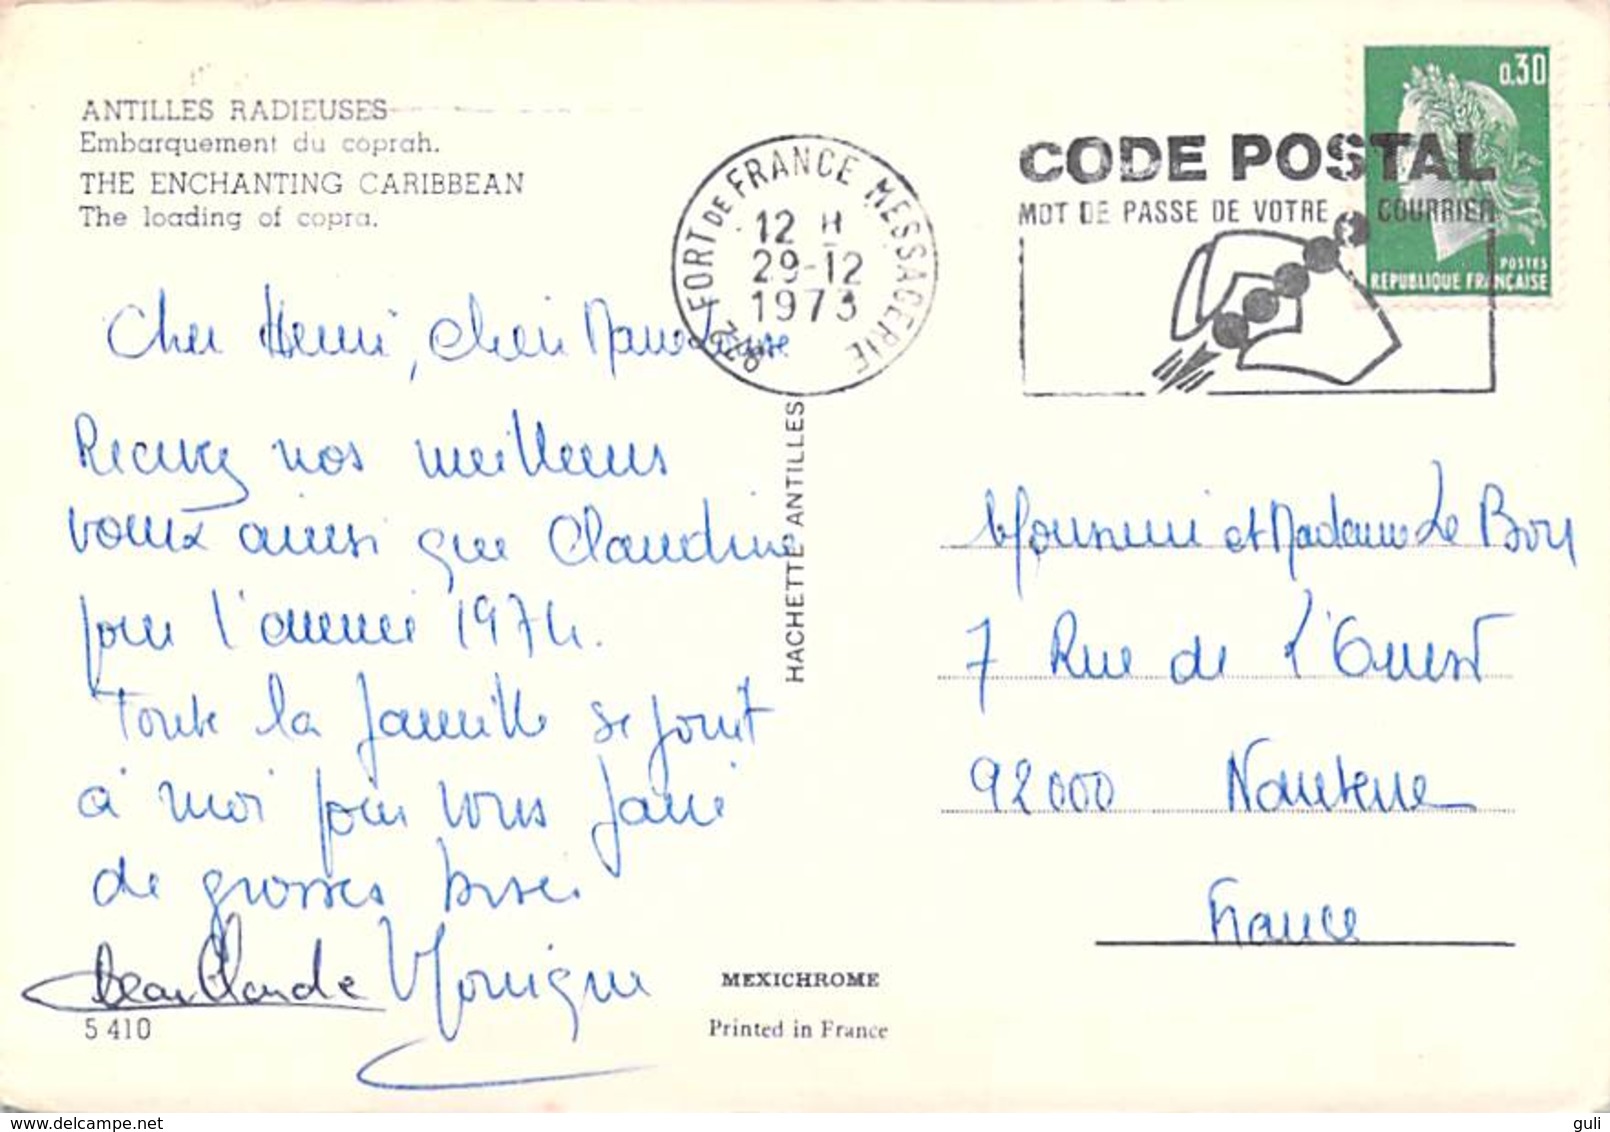 ANTILLES RADIEUSES
Embarquement du coprah.
THE ENCHANTING CARIBBEAN
The loading of copra.
972 FORT DE FRANCE MESSAGERIE
12 H
29-12
1973
CODE POSTAL
MOT DE PASSE DE VOTRE COURRIER
0.30
POSTES
REPUBLIQUE FRANÇAISE
Cher Henri, Chère Marie Louise
Recevez nos meilleurs
voeux ainsi que Claudine
pour l'année 1974.
Toute la famille se joint
à moi pour vous faire
de grosses bises
Jean Claude Monique
5 410
HACHETTE ANTILLES
MEXICHROME
Printed in France
Monsieur et Madame Le
7 Rue de l'Ouest
92000 Nanterre
France
www.delcampe.net
guli